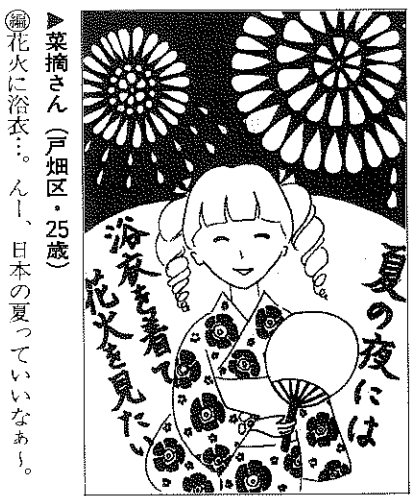 夏の夜には
浴衣を着て
花火を見たい
▶菜摘さん（戸畑区・25歳）
㊝花火に浴衣…。んー、日本の夏っていいなぁ〜。